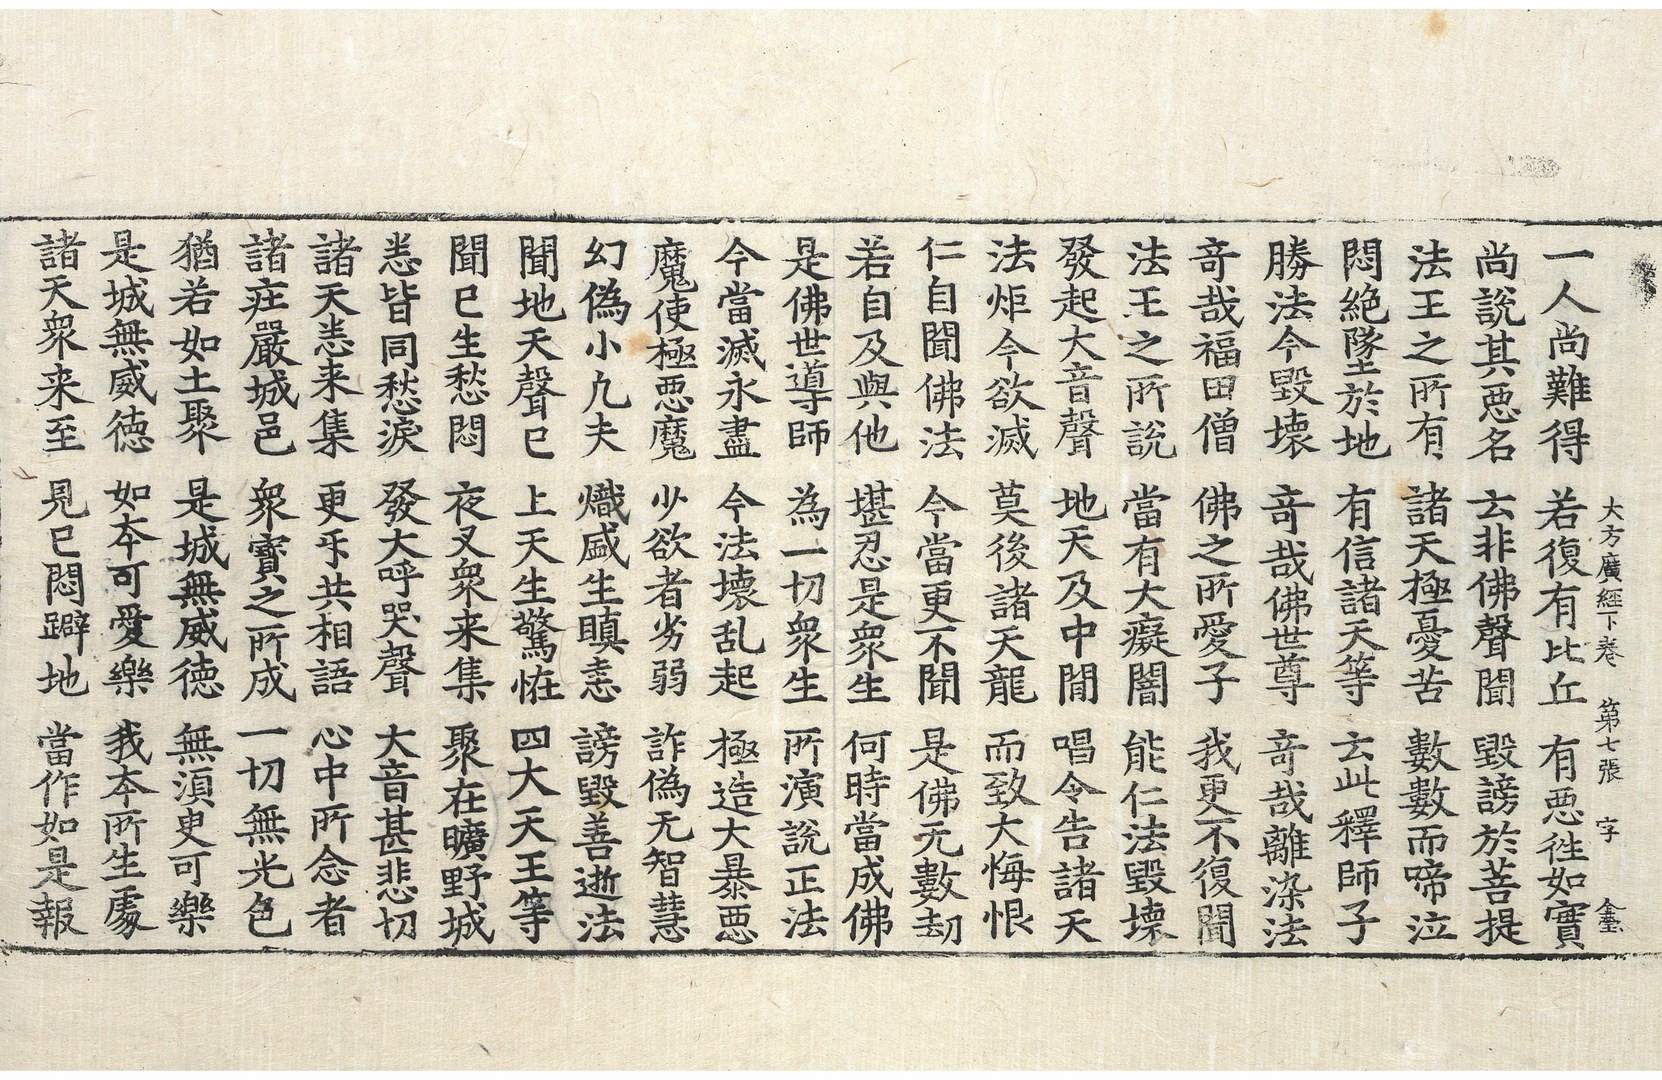 一人尚難得 若復有比丘 有惡性如實
尚說其惡名 云非佛聲聞 毀謗於菩提
法王之所有 諸天極憂苦 數數而啼泣
悶絕墜於地 有信諸天等 云此釋師子
勝法今毀壞 竒哉佛世尊 竒哉離染法
竒哉福田僧 佛之所愛子 我更不復聞
法王之所說 當有大癡闇 能仁法毀壞
發起大音聲 地天及中閒 唱令告諸天
法炬今欲滅 莫後諸天龍 而致大悔恨
仁自聞佛法 今當更不聞 是佛无數劫
若自及與他 堪忍是衆生 何時當成佛
是佛世導師 為一切衆生 所演說正法
今當滅永盡 今法壞乱起 極造大暴惡
魔使極惡魔 少欲者劣弱 詐偽无智慧
幻偽小凢夫 熾盛生瞋恚 謗毀善逝法
聞地天聲已 上天生驚恠 四大天王等
聞已生愁悶 夜叉衆来集 聚在曠野城
悉皆同愁淚 發大呼哭聲 大音甚悲切
諸天悉来集 更㸦共相語 心中所念者
諸庄嚴城邑 衆寶之所成 一切無光色
猶若如土聚 是城無威徳 無須更可樂
是城無威徳 如本可愛樂 我本所生處
諸天衆来至 見已悶躃地 當作如是報
大方廣經下卷 第七張 字